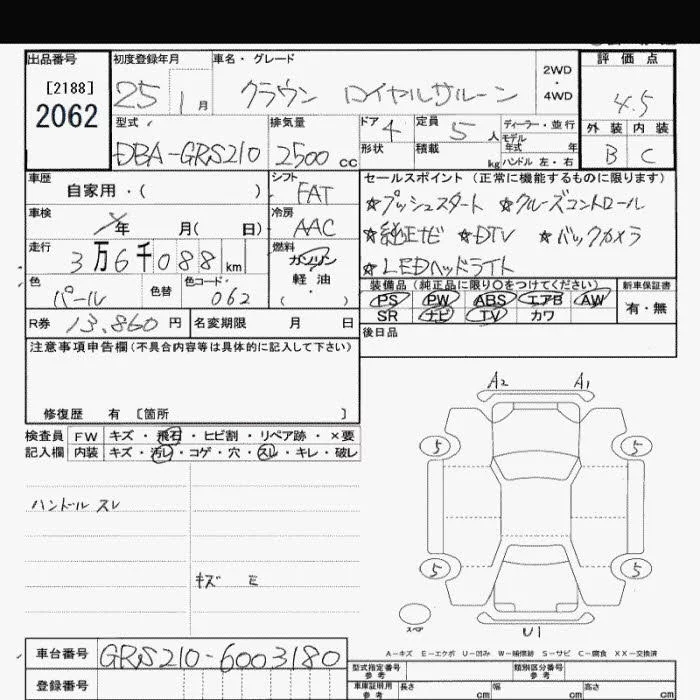 出品番号 初度登録年月 車名・グレード 評価点
[2188] 25 1月 クラウン ロイヤルサルーン 2WD・4WD 4.5
2062
型式 排気量 ドア 4 定員 5人 ディーラー・並行 外装 内装
DBA-GRS210 2500cc 形状 積載 kg モデル年式 年 ハンドル 左・右 B C
車歴 シフト セールスポイント(正常に機能するものに限ります)
自家用・( ) FAT ☆プッシュスタート ☆クルーズコントロール
車検 年 月( 日) 冷房 AAC ☆純正ナビ ☆DTV ☆バックカメラ
走行 3万6千088km 燃料 ガソリン ☆LEDヘッドライト
色 パール 色替 色コード 062 軽油・( ) 装備品(純正品に限り○をつけてください) 新車保証書
PS PW ABS エアB AW 有・無
R券 13,860円 名変期限 月 日 SR ナビ TV カワ
注意事項申告欄(不具合内容等は具体的に記入して下さい) 後日品
修復歴 有 〔箇所 〕
検査員 FW キズ・飛石・ヒビ割・リペア跡・×要
記入欄 内装 キズ・汚レ・コゲ・穴・スレ・キレ・破レ
A2 A1
5 5
ハンドル スレ
キズ E
5 5
スペア U1
A-キズ E-エクボ U-凹み W-補修跡 S-サビ C-腐食 XX-交換済
車台番号 GRS210-6003180 型式指定番号 参考 類別区分番号 参考
登録番号 車庫証明用 参考 長さ cm 幅 cm 高さ cm